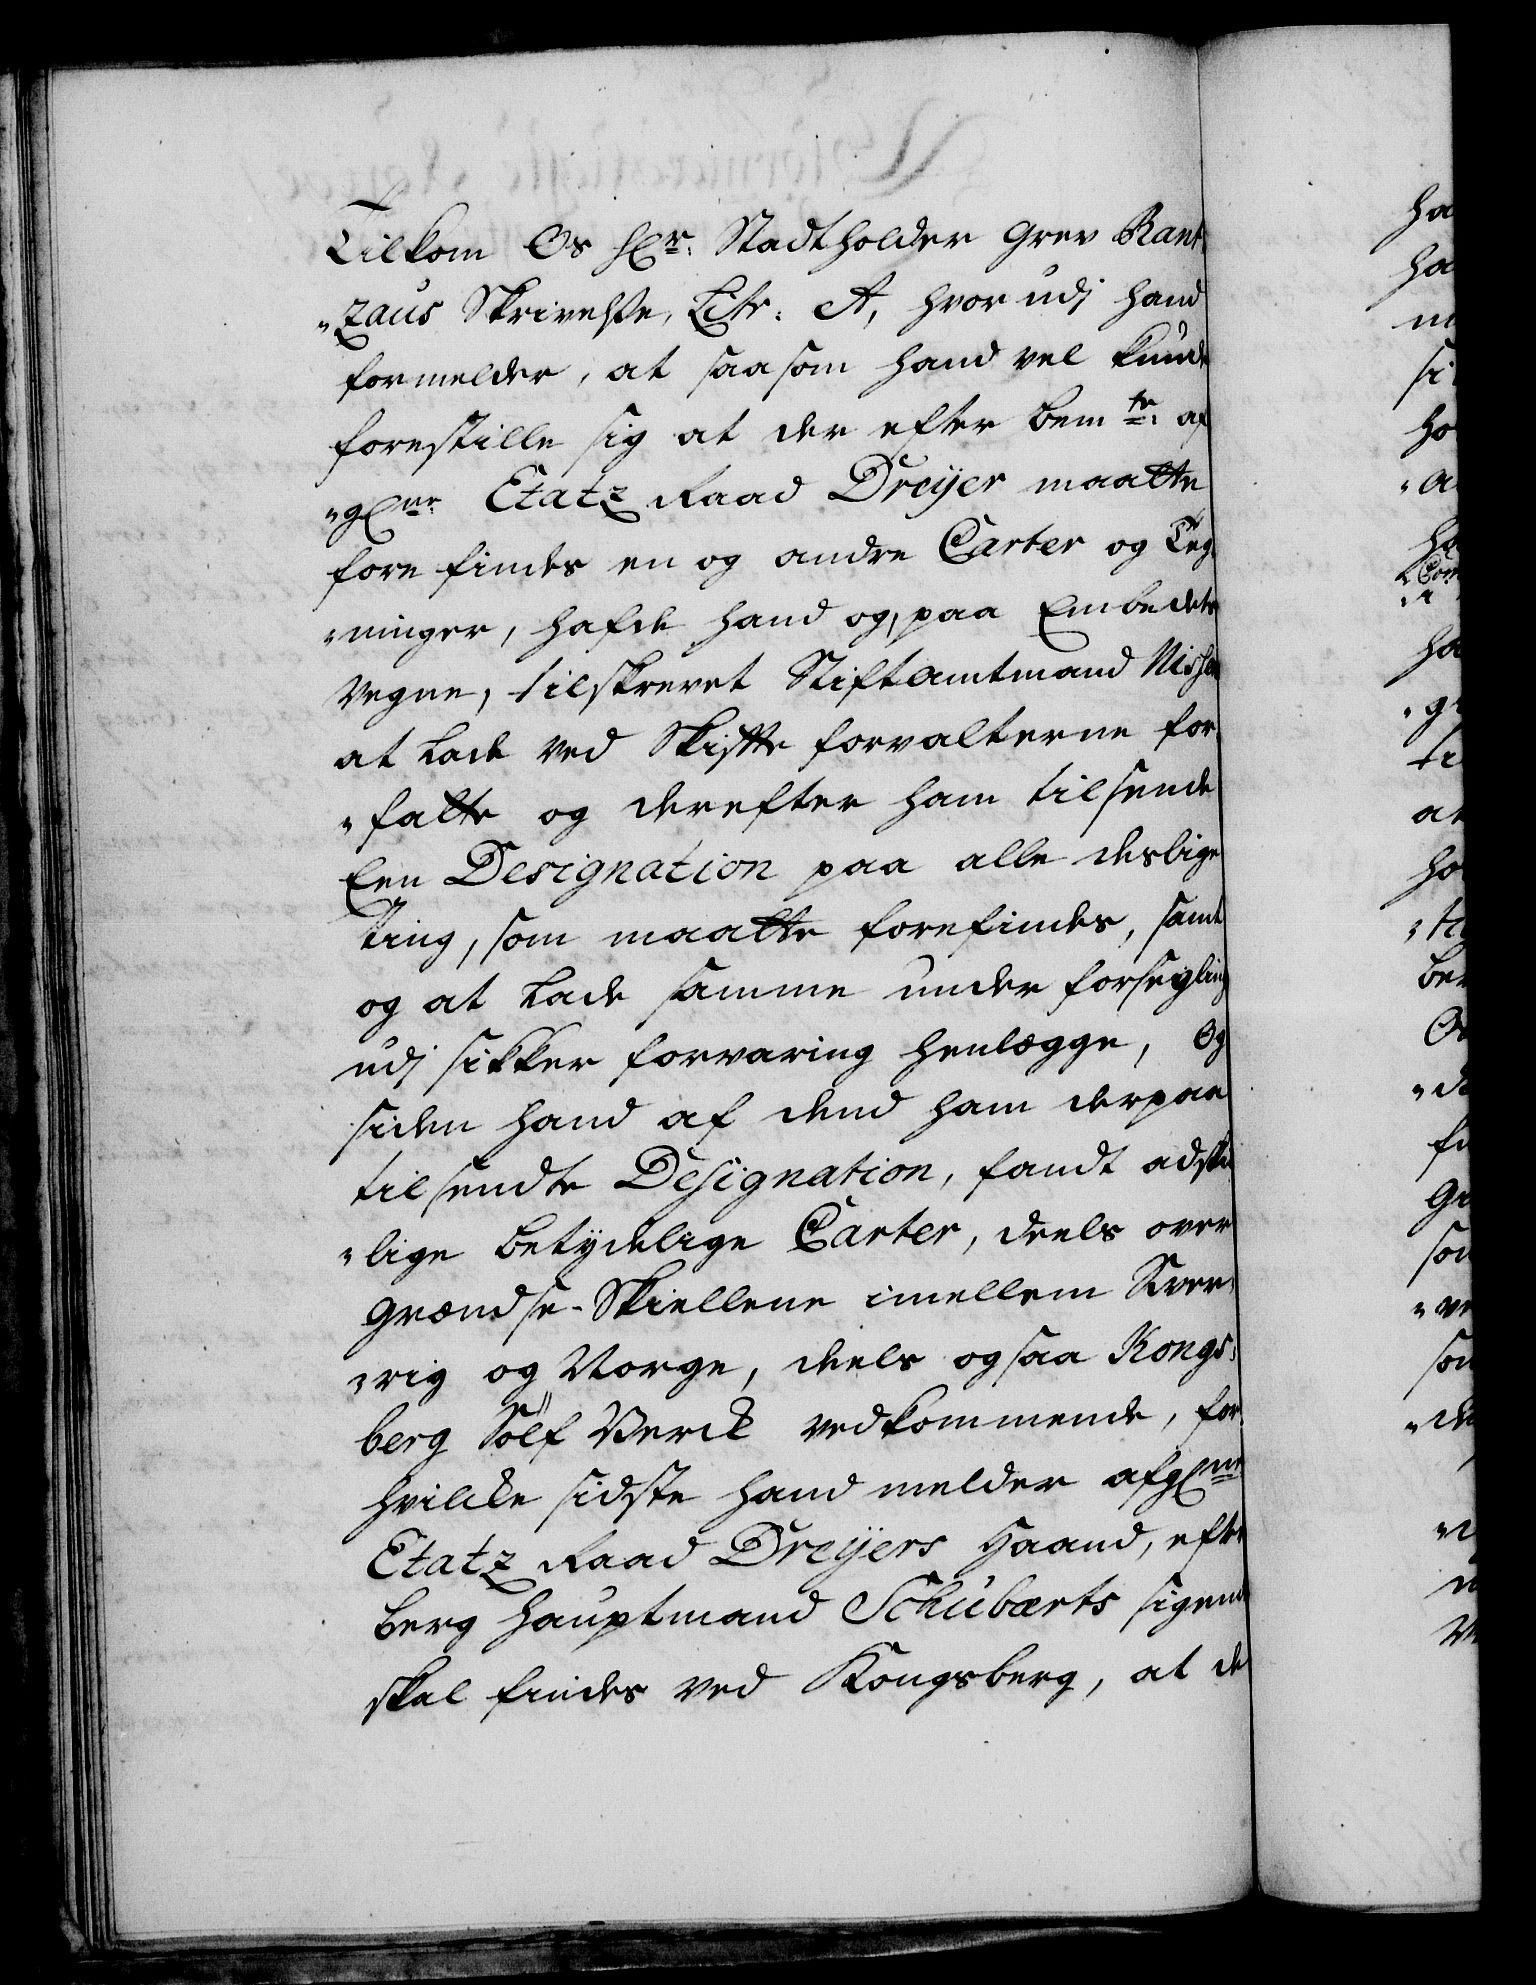 Tilkom Os hr: Stadtholder Grev Rant
„zaus Skrivelse, Litr: A, hvorudj hand
formelder, at saasom hand vel kunde
forestille sig at der efter bemte: af
„gne: Etatz Raad Dreyer maatte
forefindes en og andre Carter og Teg
„ninger, hafde hand og, paa Embedets
Vegne, tilskrevet Stiftamtmand Nissen
at lade ved Skifte forvalterne for
„fatte og derefter ham tilsende
Een Designation paa alle deslige
Ting, som maatte forefindes, samt
og at lade samme under forsegling
udj sikker forvaring henlægge, Og
siden hand af dend ham derpaa
tilsendte Designation, fandt adski
„lige betydelige Carter, deels over
Grændse-Skiellene imellem Sver,
„rig og Norge, deels ogsaa Kongs,
berg Sölf Verck vedkommende, for
hvilcke sidste hand melder afgne
Etatz Raad Dreyers Haand, efter
Berg Hauptmand Schubærts sigende
skal findes ved Kongsberg, at de